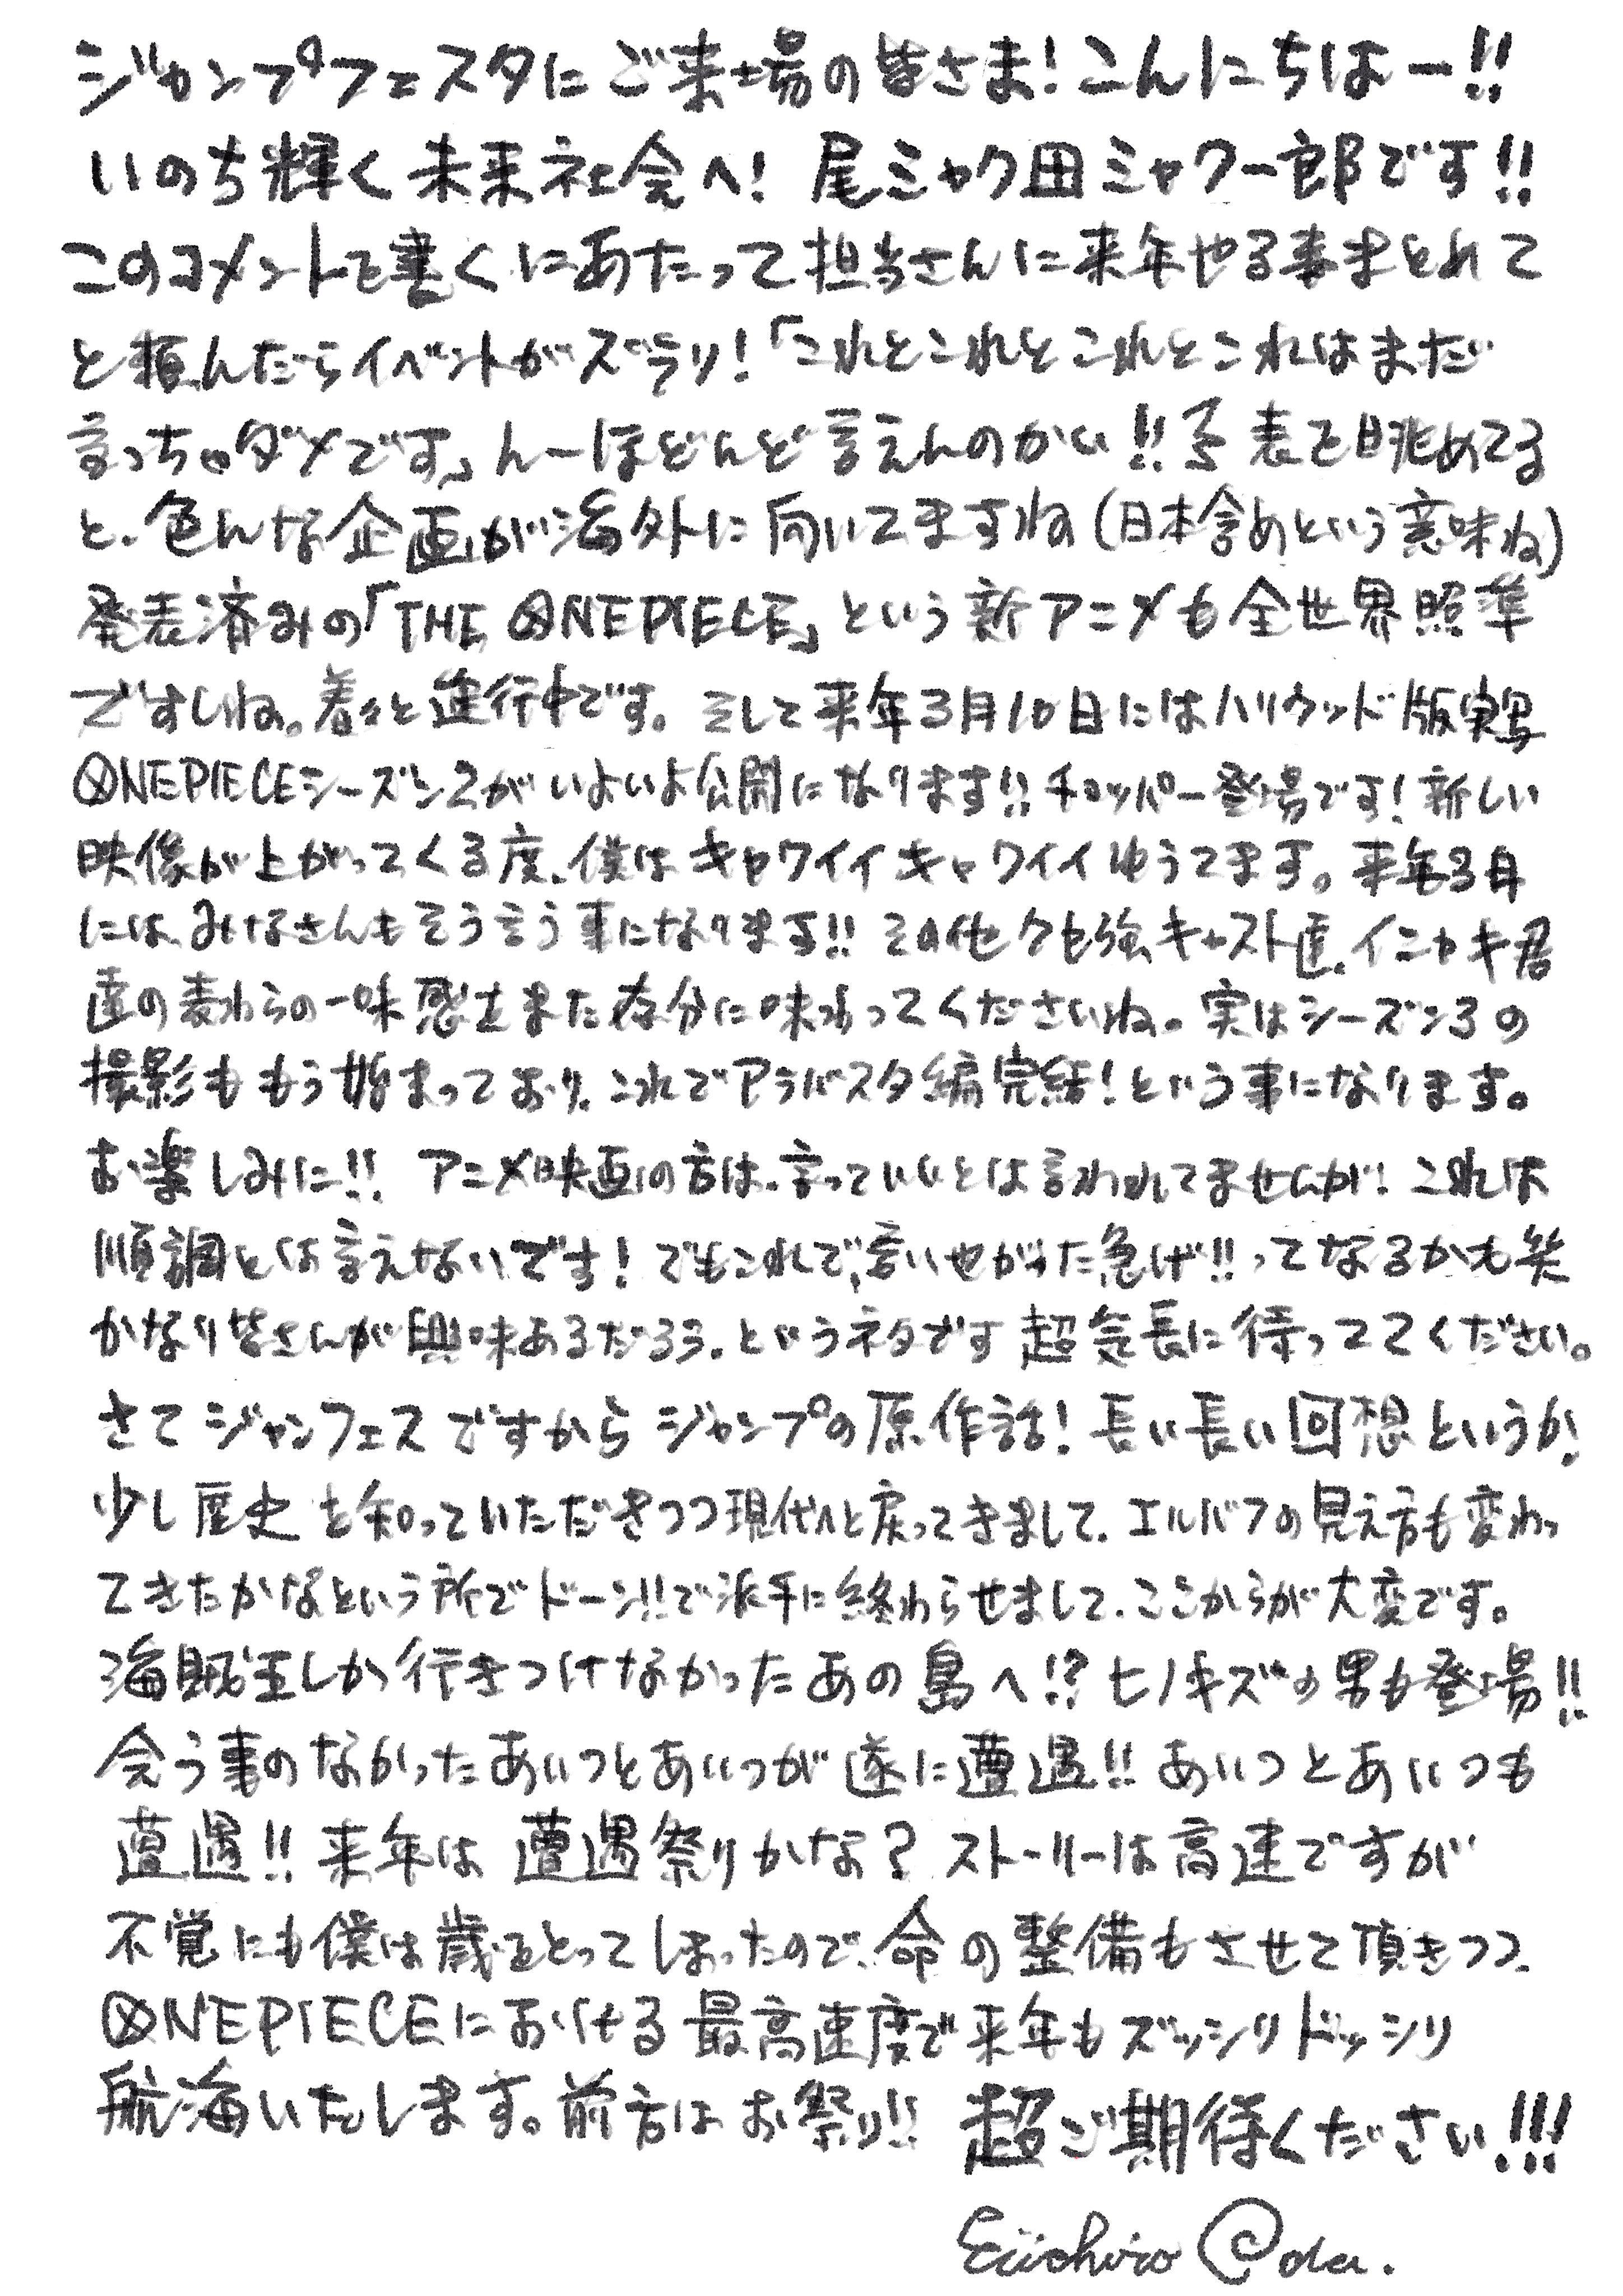 ジャンプフェスタにご来場の皆さま!こんにちはー!!
いのち輝く未来社会へ! 尾ミャク田ミャクー郎です!!
このコメントを書くにあたって担当さんに来年やる事まとめて
と頼んだらイベントがズラリ!「これとこれとこれとこれはまだ
言っちゃダメです」んーほとんど言えんのかい!!予表を眺めてる
と、色んな企画が海外に向いてますね(日本含めという意味ね)
発表済みの「THE ONE PIECE」という新アニメも全世界照準
ですしね。着々と進行中です。そして来年3月10日にはハリウッド版実写
ONE PIECEシーズン2がいよいよ公開になります!!チョッパー登場です!新しい
映像が上がってくる度、僕はキャワイイキャワイイゆうてます。来年3月
には、みなさんもそう言う事になります!!その他クセ強キャスト達、イニャキ君
達の麦わらの一味感をまた存分に味わってくださいね。実はシーズン3の
撮影ももう始まっており、これでアラバスタ編完結!という事になります。
お楽しみに!! アニメ映画の方は、言っていいとは言われてませんが!これは
順調とは言えないです!でもこれで、言いやがった急げ!!ってなるかも笑
かなり皆さんが興味あるだろう、というネタです 超気長に待っててください。
さてジャンフェスですからジャンプの原作話!長い長い回想というか!
少し歴史を知っていただきつつ現代へと戻ってきまして、エルバフの見え方も変わっ
てきたかなという所でドーン!!で派手に終わらせまして、ここからが大変です。
海賊王しか行きつけなかったあの島へ!?ヒノキズの男も登場!!
会う事のなかったあいつとあいつが遂に遭遇!!あいつとあいつも
遭遇!!来年は遭遇祭りかな?ストーリーは高速ですが
不覚にも僕は歳をとってしまったので、命の整備もさせて頂きつつ、
ONE PIECEにおける最高速度で来年もズッシリドッシリ
航海いたします。前方はお祭り!! 超ご期待ください!!!
Eiichiro Oda.